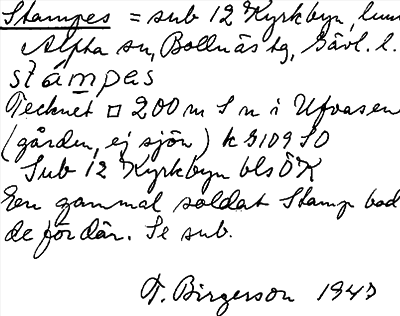 Stampes = sub 12 Kyrkbyn, lum
Alfta sn, Bollnäs tg, Gävl. l.
stámpas
Tecknet □ 200 m S n i Ufvasen
(gården, ej sjön) k 3109 SO
Sub 12 Kyrkbyn bls ÖK
En gammal soldat Stamp bod
de för där. Se sub.
T. Birgerson 1943